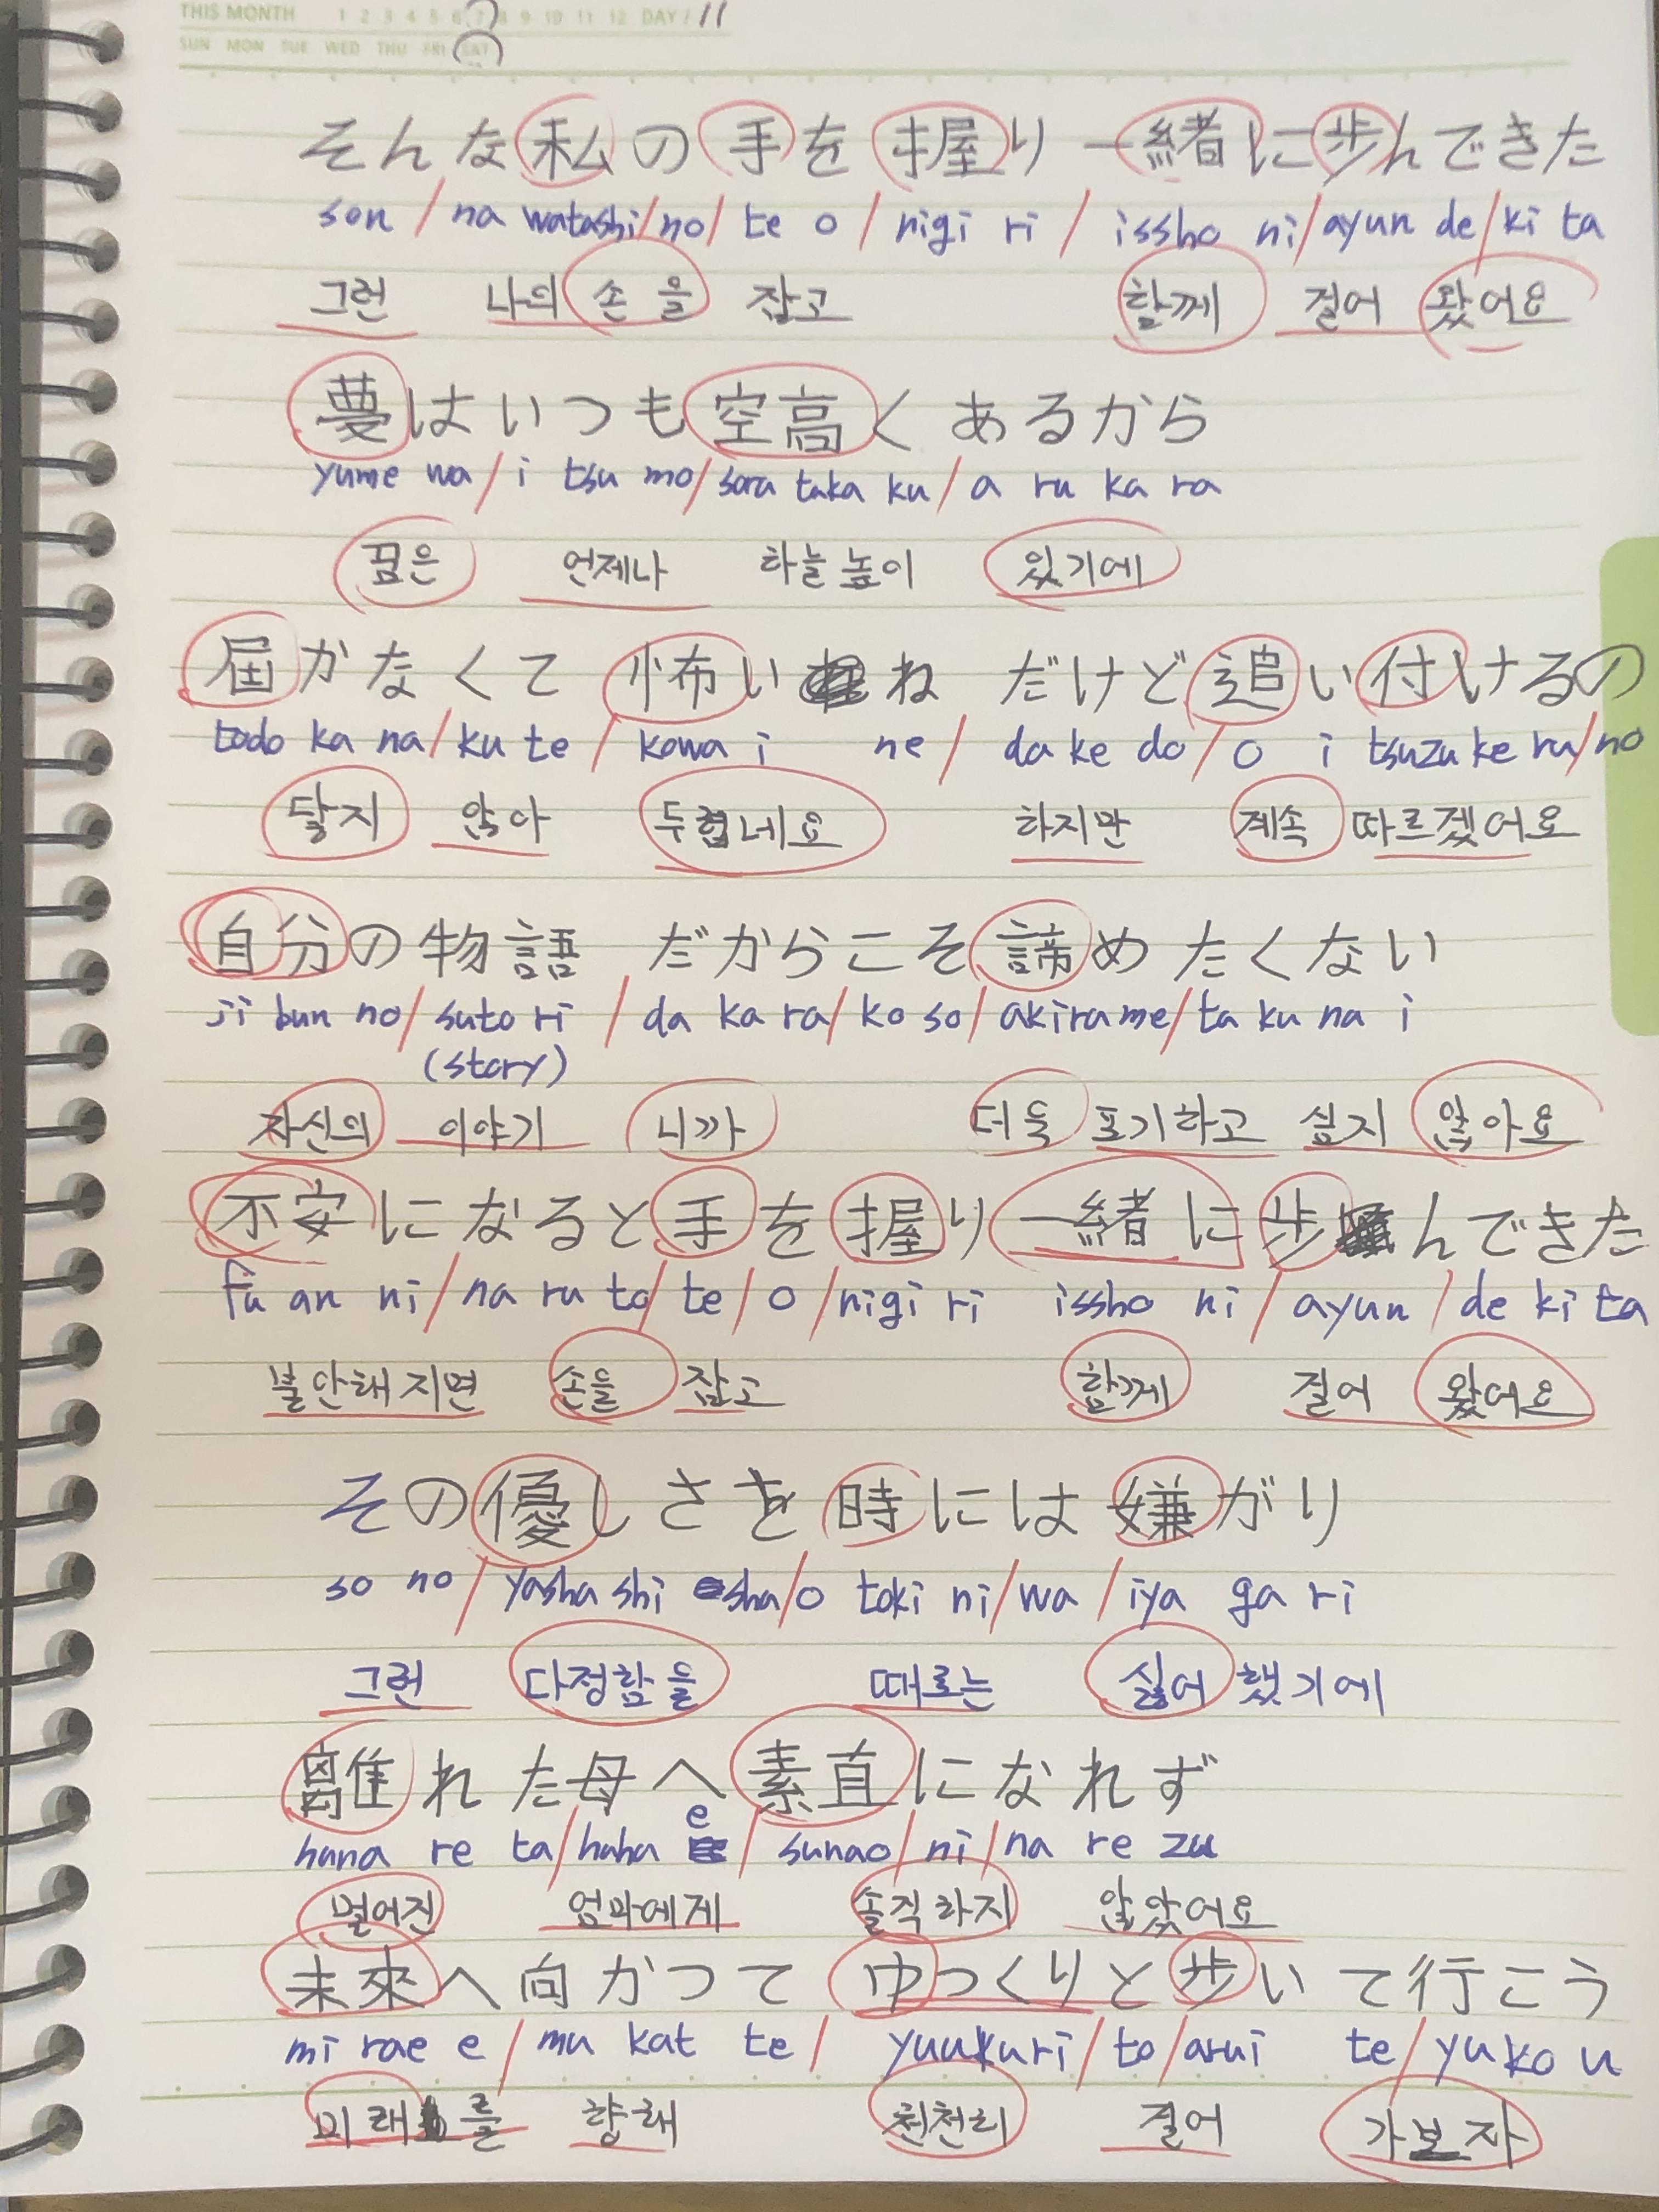 THIS MONTH 1 2 3 4 5 6 7 8 9 10 11 12 DAY / 11
SUN MON TUE WED THU FRI SAT
そんな私の手を握り一緒に歩んできた
son / na watashi / no / te o / nigi ri / issho ni / ayun de / ki ta
그런 나의 손을 잡고 함께 걸어 왔어요
夢はいつも空高くあるから
yume wa / i tsu mo / sora taka ku / a ru ka ra
꿈은 언제나 하늘높이 있기에
届かなくて怖いね だけど追い付けるの
todo ka na / ku te / kowa i ne / da ke do / o i tsuzu ke ru / no
닿지 않아 두렵네요 하지만 계속 따르겠어요
自分の物語 だからこそ諦めたくない
ji bun no / suto ri / da ka ra / ko so / akirame / ta ku na i
(story)
자신의 이야기 니까 더욱 포기하고 싶지 않아요
不安になると手を握り一緒に歩んできた
fu an ni / na ru to / te / o / nigi ri issho ni / ayun / de ki ta
불안해지면 손을 잡고 함께 걸어 왔어요
その優しさを時には嫌がり
so no / yasha shi sha / o toki ni / wa / iya ga ri
그런 다정함을 때로는 싫어했기에
離れた母へ素直になれず
hana re ta / haha e / sunao / ni / na re zu
멀어진 엄마에게 솔직하지 않았어요
未來へ向かつて ゆっくりと歩いて行こう
mi rae e / mu kat te / yuukuri / to / arui te / yu ko u
미래를 향해 천천히 걸어 가보자